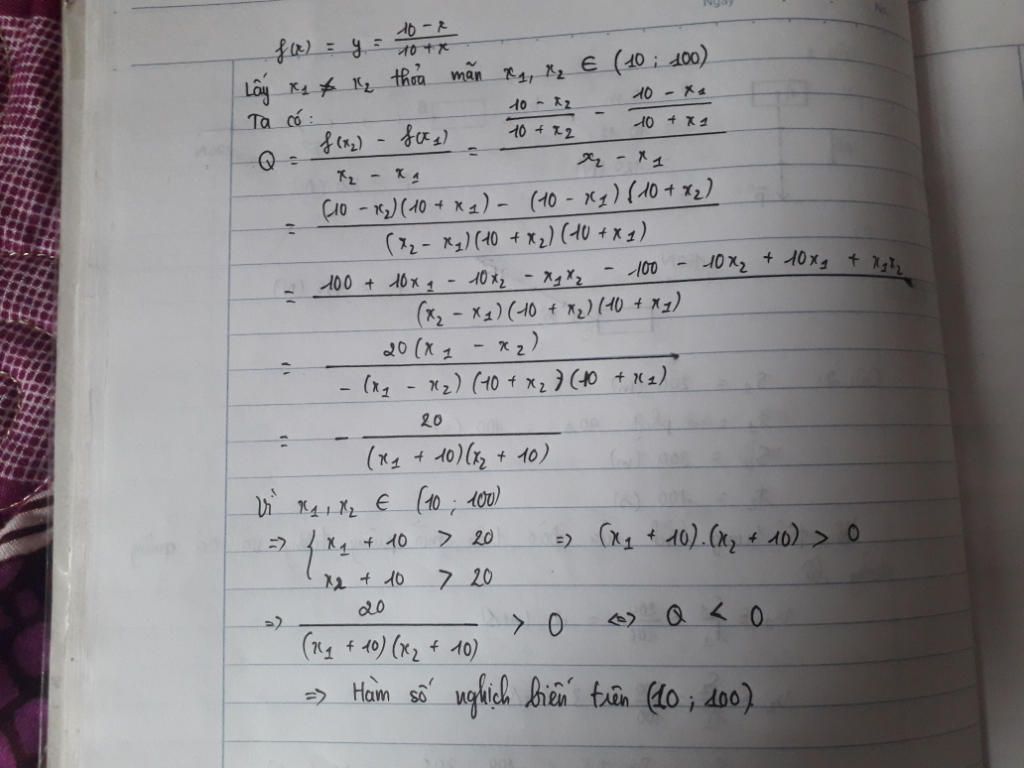 Ngày
No.
f(x) = y = \frac{10 - x}{10 + x}
Lấy x₁ ≠ x₂ thỏa mãn x₁, x₂ ∈ (10 ; 100)
Ta có:
Q = \frac{f(x₂) - f(x₁)}{x₂ - x₁} = \frac{\frac{10 - x₂}{10 + x₂} - \frac{10 - x₁}{10 + x₁}}{x₂ - x₁}
= \frac{(10 - x₂)(10 + x₁) - (10 - x₁)(10 + x₂)}{(x₂ - x₁)(10 + x₂)(10 + x₁)}
= \frac{100 + 10x₁ - 10x₂ - x₁x₂ - 100 - 10x₂ + 10x₁ + x₁x₂}{(x₂ - x₁)(10 + x₂)(10 + x₁)}
= \frac{20(x₁ - x₂)}{-(x₁ - x₂)(10 + x₂)(10 + x₁)}
= - \frac{20}{(x₁ + 10)(x₂ + 10)}
Vì x₁, x₂ ∈ (10 ; 100)
=> { x₁ + 10 > 20 => (x₁ + 10).(x₂ + 10) > 0
x₂ + 10 > 20
=> \frac{20}{(x₁ + 10)(x₂ + 10)} > 0 <=> Q < 0
=> Hàm số nghịch biến trên (10 ; 100)